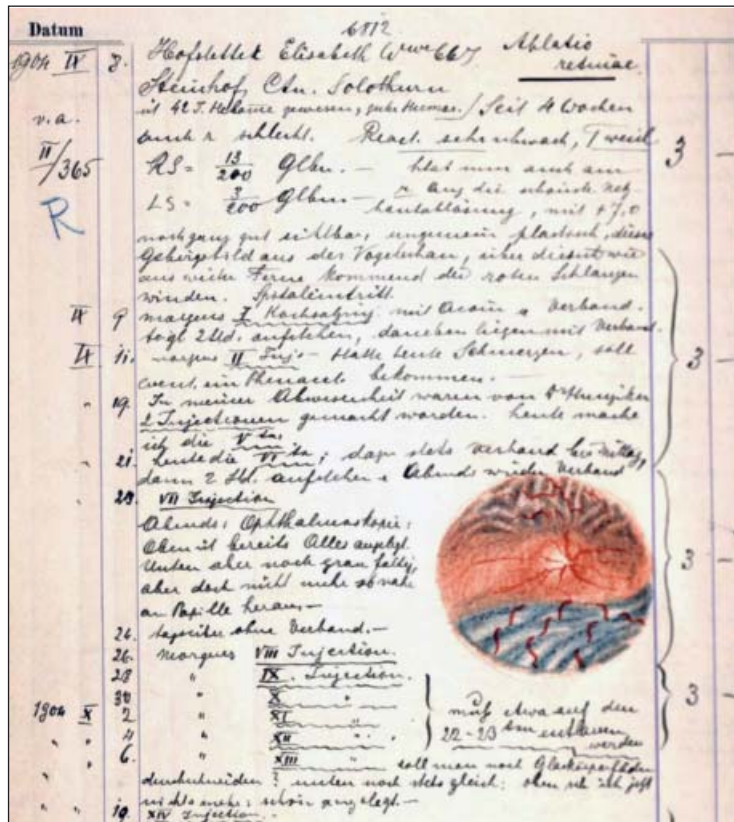 Datum
6812
1904 IX 8. Hofstetter Elisabeth Wwe 66 J Ablatio
retinae.
Steinhof, Ctn. Solothurn
v.a. ist 42 J. Hebamme gewesen, / Seit 4 Wochen
auch r schlecht. React. sehr schwach, T weich
II/365 RS = 13/200 Glbn. — man auch am
R LS = 3/200 Glbn — r Aug die schönste Netz-
hautablösung, mit + 7,0
noch ganz gut sichtbar, ungemein plastisch, dieses
Gebirgsbild aus der Vogelschau, über die
aus weiter Ferne kommend die roten Schlangen
winden. Spitaleintritt.
IX 9 morgens I Kochsalzinj. mit Acoin & Verband.
tägl 2 Std. aufstehen, daneben liegen mit Verband.
IX 11. morgens II Inj. — hatte heute Schmerzen, soll
event. ein Phenacet bekommen. —
" 19. In meiner Abwesenheit waren von Dr Hunziker
2 Injectionen gemacht worden. Heute mache
ich die V te
" 21. Heute die VI te; dazu stets Verband bis Mittag,
dann 2 Std. aufstehen & Abends wieder Verband
23. VII Injection
Abends: Ophthalmoskopie:
Oben ist bereits Alles angelegt.
Unten aber noch grau faltig,
aber doch nicht mehr so nahe
an Papille heran. —
24. tagsüber ohne Verband. —
26. Morgens VIII Injection.
28 " IX. Injection.
30 " X "
1904 X 2 " XI " muss etwa auf den
" 4 " XII " 22-23 ten entlassen
werden
" 6. " XIII " soll man noch Glaskörperfäden
durchschneiden? unten noch stets gleich: oben seh ich jetzt
nichts mehr: schön angelegt. —
" " 10. XIV Injection. —
3
3
3
3